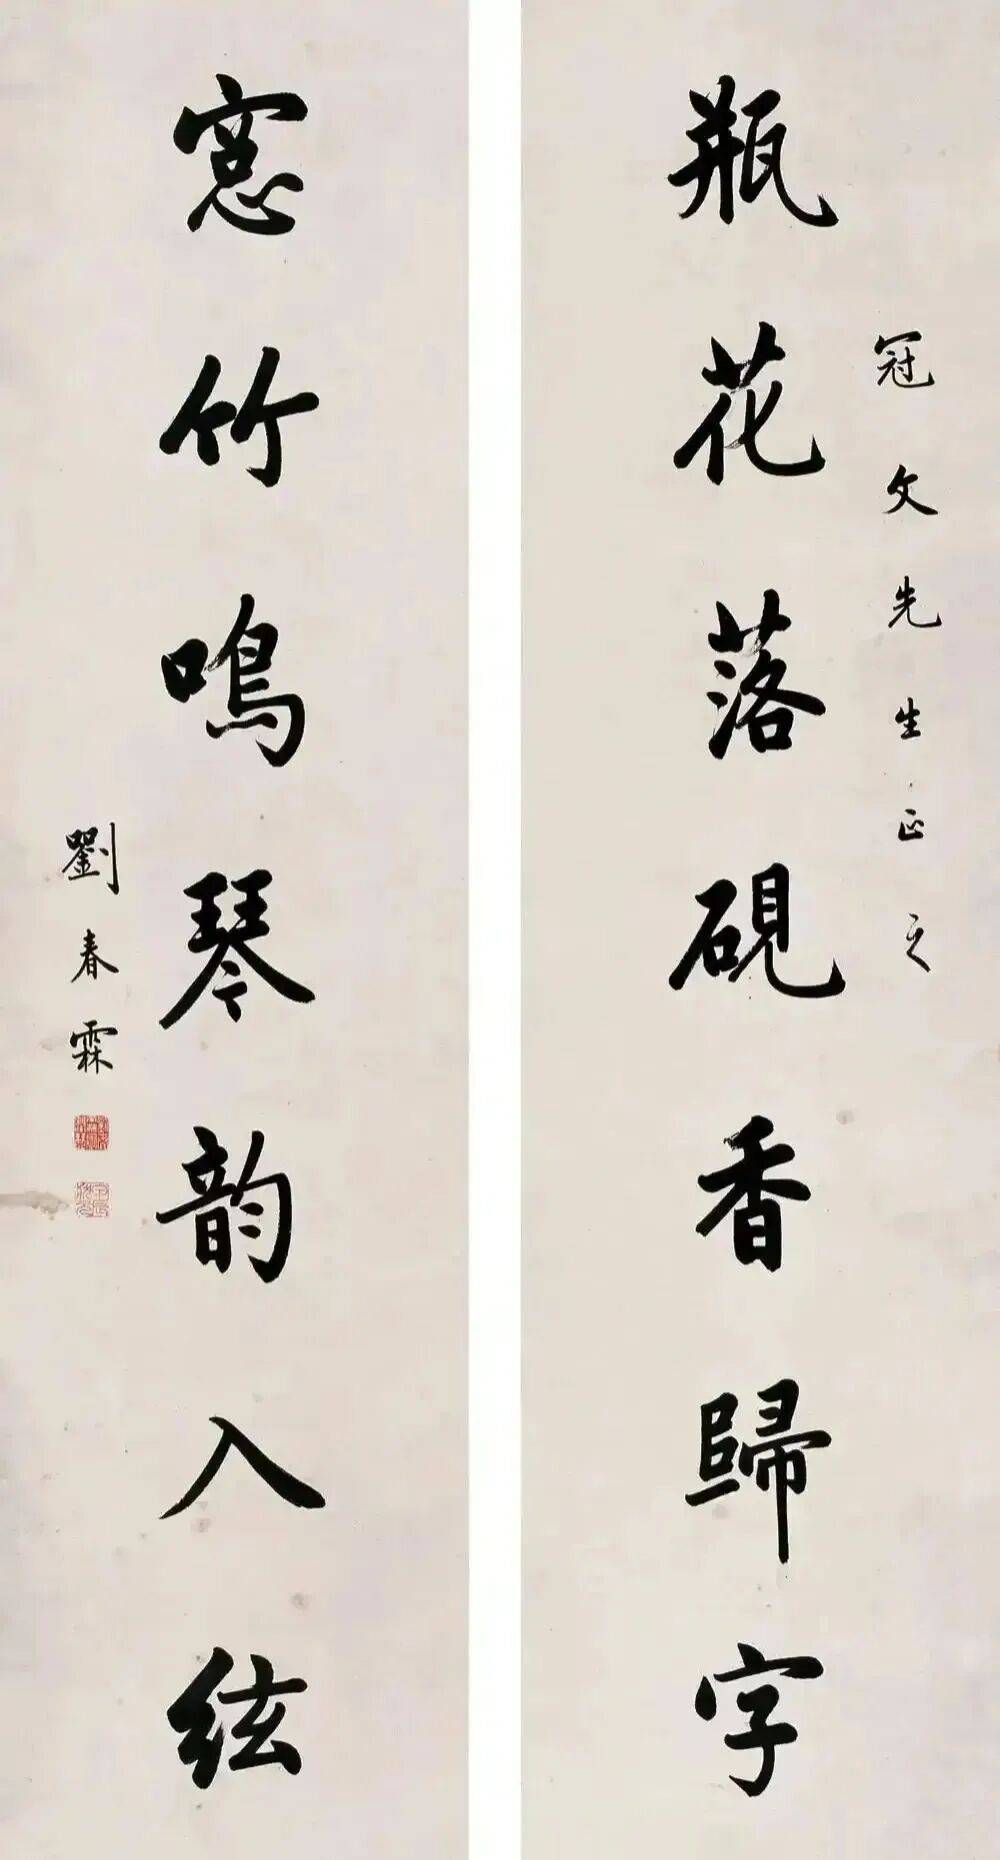 瓶花落硯香歸字
冠文先生正之
窓竹鳴琴韵入絃
劉春霖